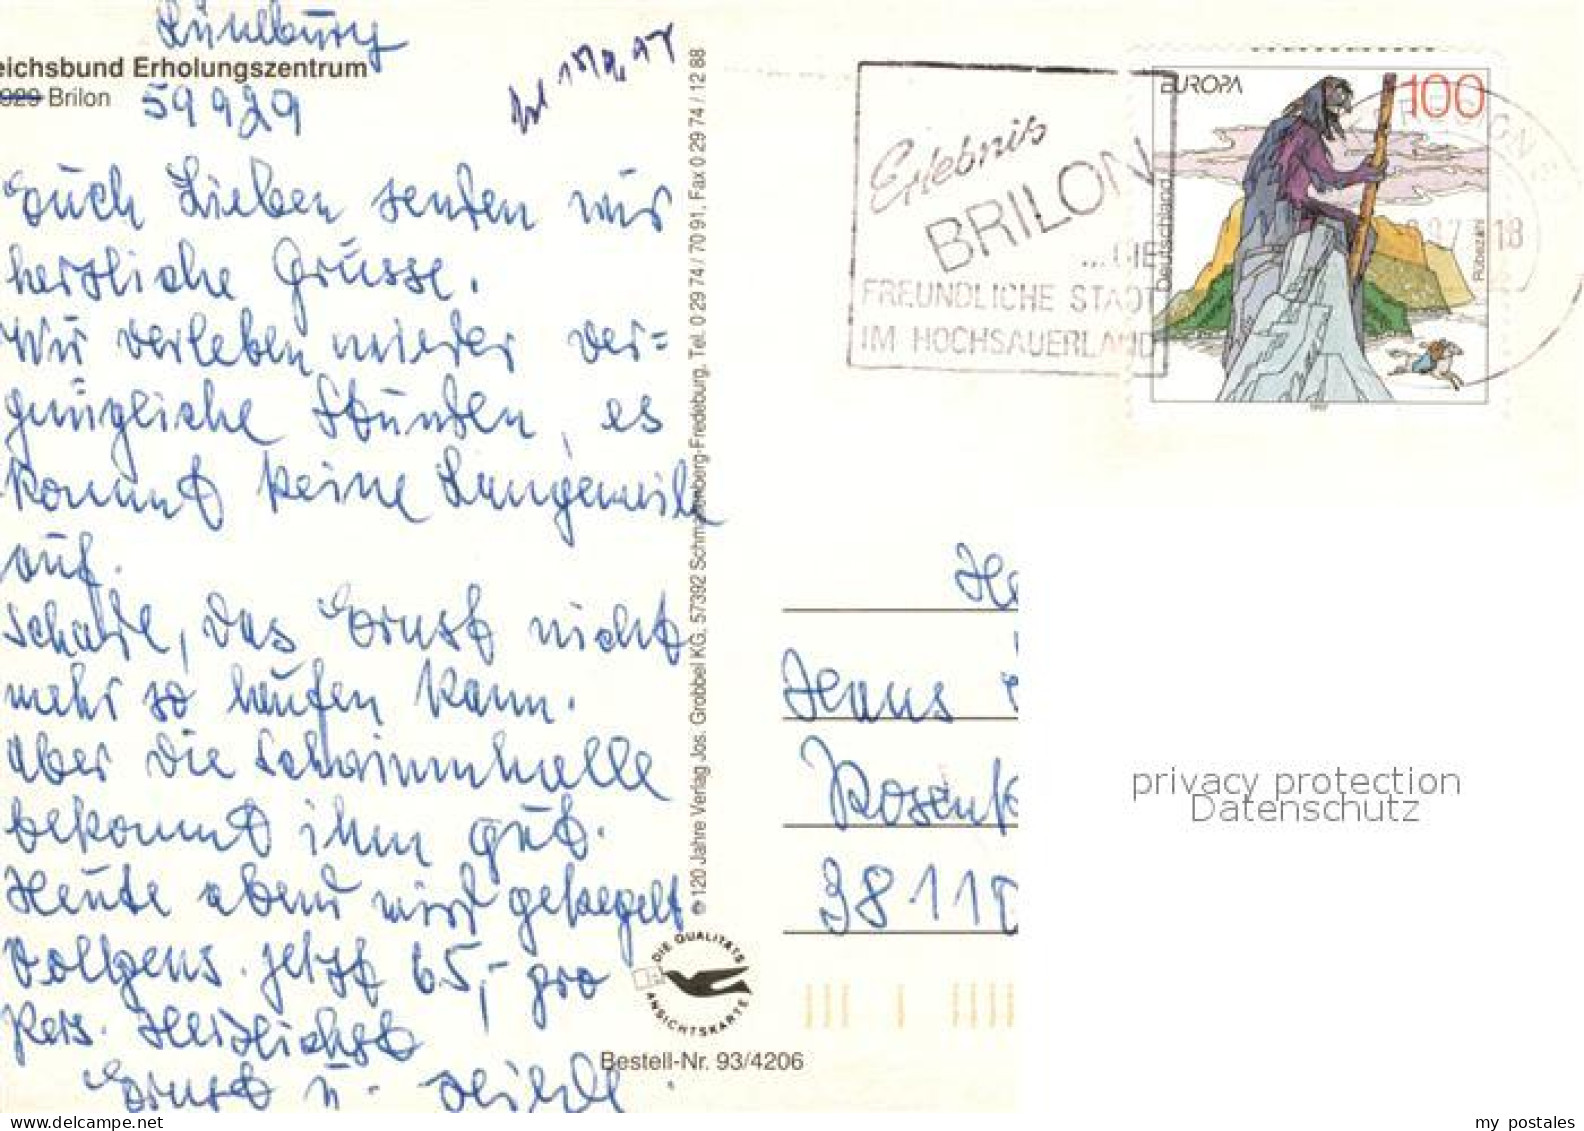 Lünelburg
eichsbund Erholungszentrum
929 Brilon
59929
Euch Lieben senden wir
herzliche Grüsse.
Wir verleben wieder ver=
gnügliche Stunden, es
kommt keine Langeweile
auf.
Schade, das Ernst nicht
mehr so laufen kann.
Aber die Schwimmhalle
bekommt ihm gut.
Heute abend wird gekegelt
Vollpens. jetzt 65,- pro
Pers. Herzlichst
Ernst u. Hilde.
© 120 Jahre Verlag Jos. Grobbel KG, 57392 Schmallenberg-Fredeburg, Tel. 0 29 74 / 70 91, Fax 0 29 74 / 12 88
DIE QUALITÄTS
ANSICHTSKARTE
Bestell-Nr. 93/4206
Erlebnis
BRILON
... DIE
FREUNDLICHE STADT
IM HOCHSAUERLAND
EUROPA
100
Deutschland
Rübezahl
1997
REGION 5
97 18
He
Hans
Rosenk
3811
privacy protection
Datenschutz
my postales